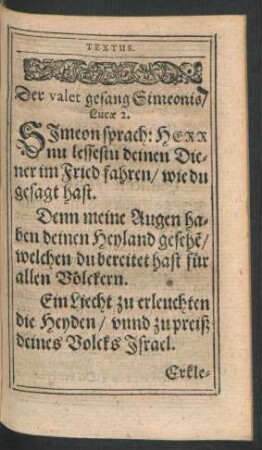 TEXTUS.
Der valet gesang Simeonis/
Lucæ 2.
SImeon sprach: HERR
nu lessestu deinen Die-
ner im Fried fahren/ wie du
gesagt hast.
Denn meine Augen ha-
ben deinen Heyland gesehē/
welchen du bereitet hast für
allen Völckern.
Ein Liecht zu erleuchten
die Heyden/ vnnd zu preiß
deines Volcks Israel.
Erkle-